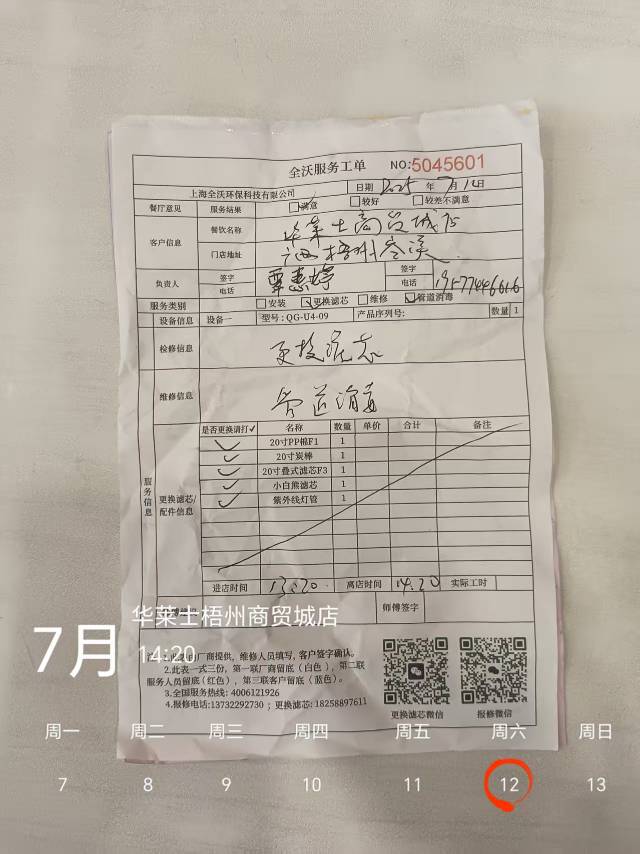 全沃服务工单 NO:5045601
上海全沃环保科技有限公司 日期 2025 年 7 月 12 日
餐厅意见 服务结果 满意 较好 较差不满意
客户信息 餐饮名称 华莱士商贸城店
门店地址 广西梧州岑溪
负责人 签字 覃惠婷 签字
电话 电话 19577446616
服务类别 安装 更换滤芯 维修 管道消毒
设备信息 设备一 型号:QG-U4-09 产品序列号: 数量 1
检修信息 更换滤芯
维修信息 管道消毒
服务信息
更换滤芯/配件信息
是否更换请打✓ 名称 数量 单价 合计 备注
✓ 20寸PP棉F1 1
✓ 20寸炭棒 1
✓ 20寸叠式滤芯F3 1
✓ 小白熊滤芯 1
✓ 紫外线灯管 1
进店时间 13:20 离店时间 14:20 实际工时
师傅签字
华莱士梧州商贸城店
7月 14:20
厂商提供，维修人员填写，客户签字确认。
2.此表一式三份，第一联厂商留底（白色），第二联
服务人员留底（红色），第三联客户留底（蓝色）。
3.全国服务热线: 4006121926
4.报修电话:13732292730；更换滤芯: 18258897611
更换滤芯微信 报修微信
周一 周二 周三 周四 周五 周六 周日
7 8 9 10 11 12 13